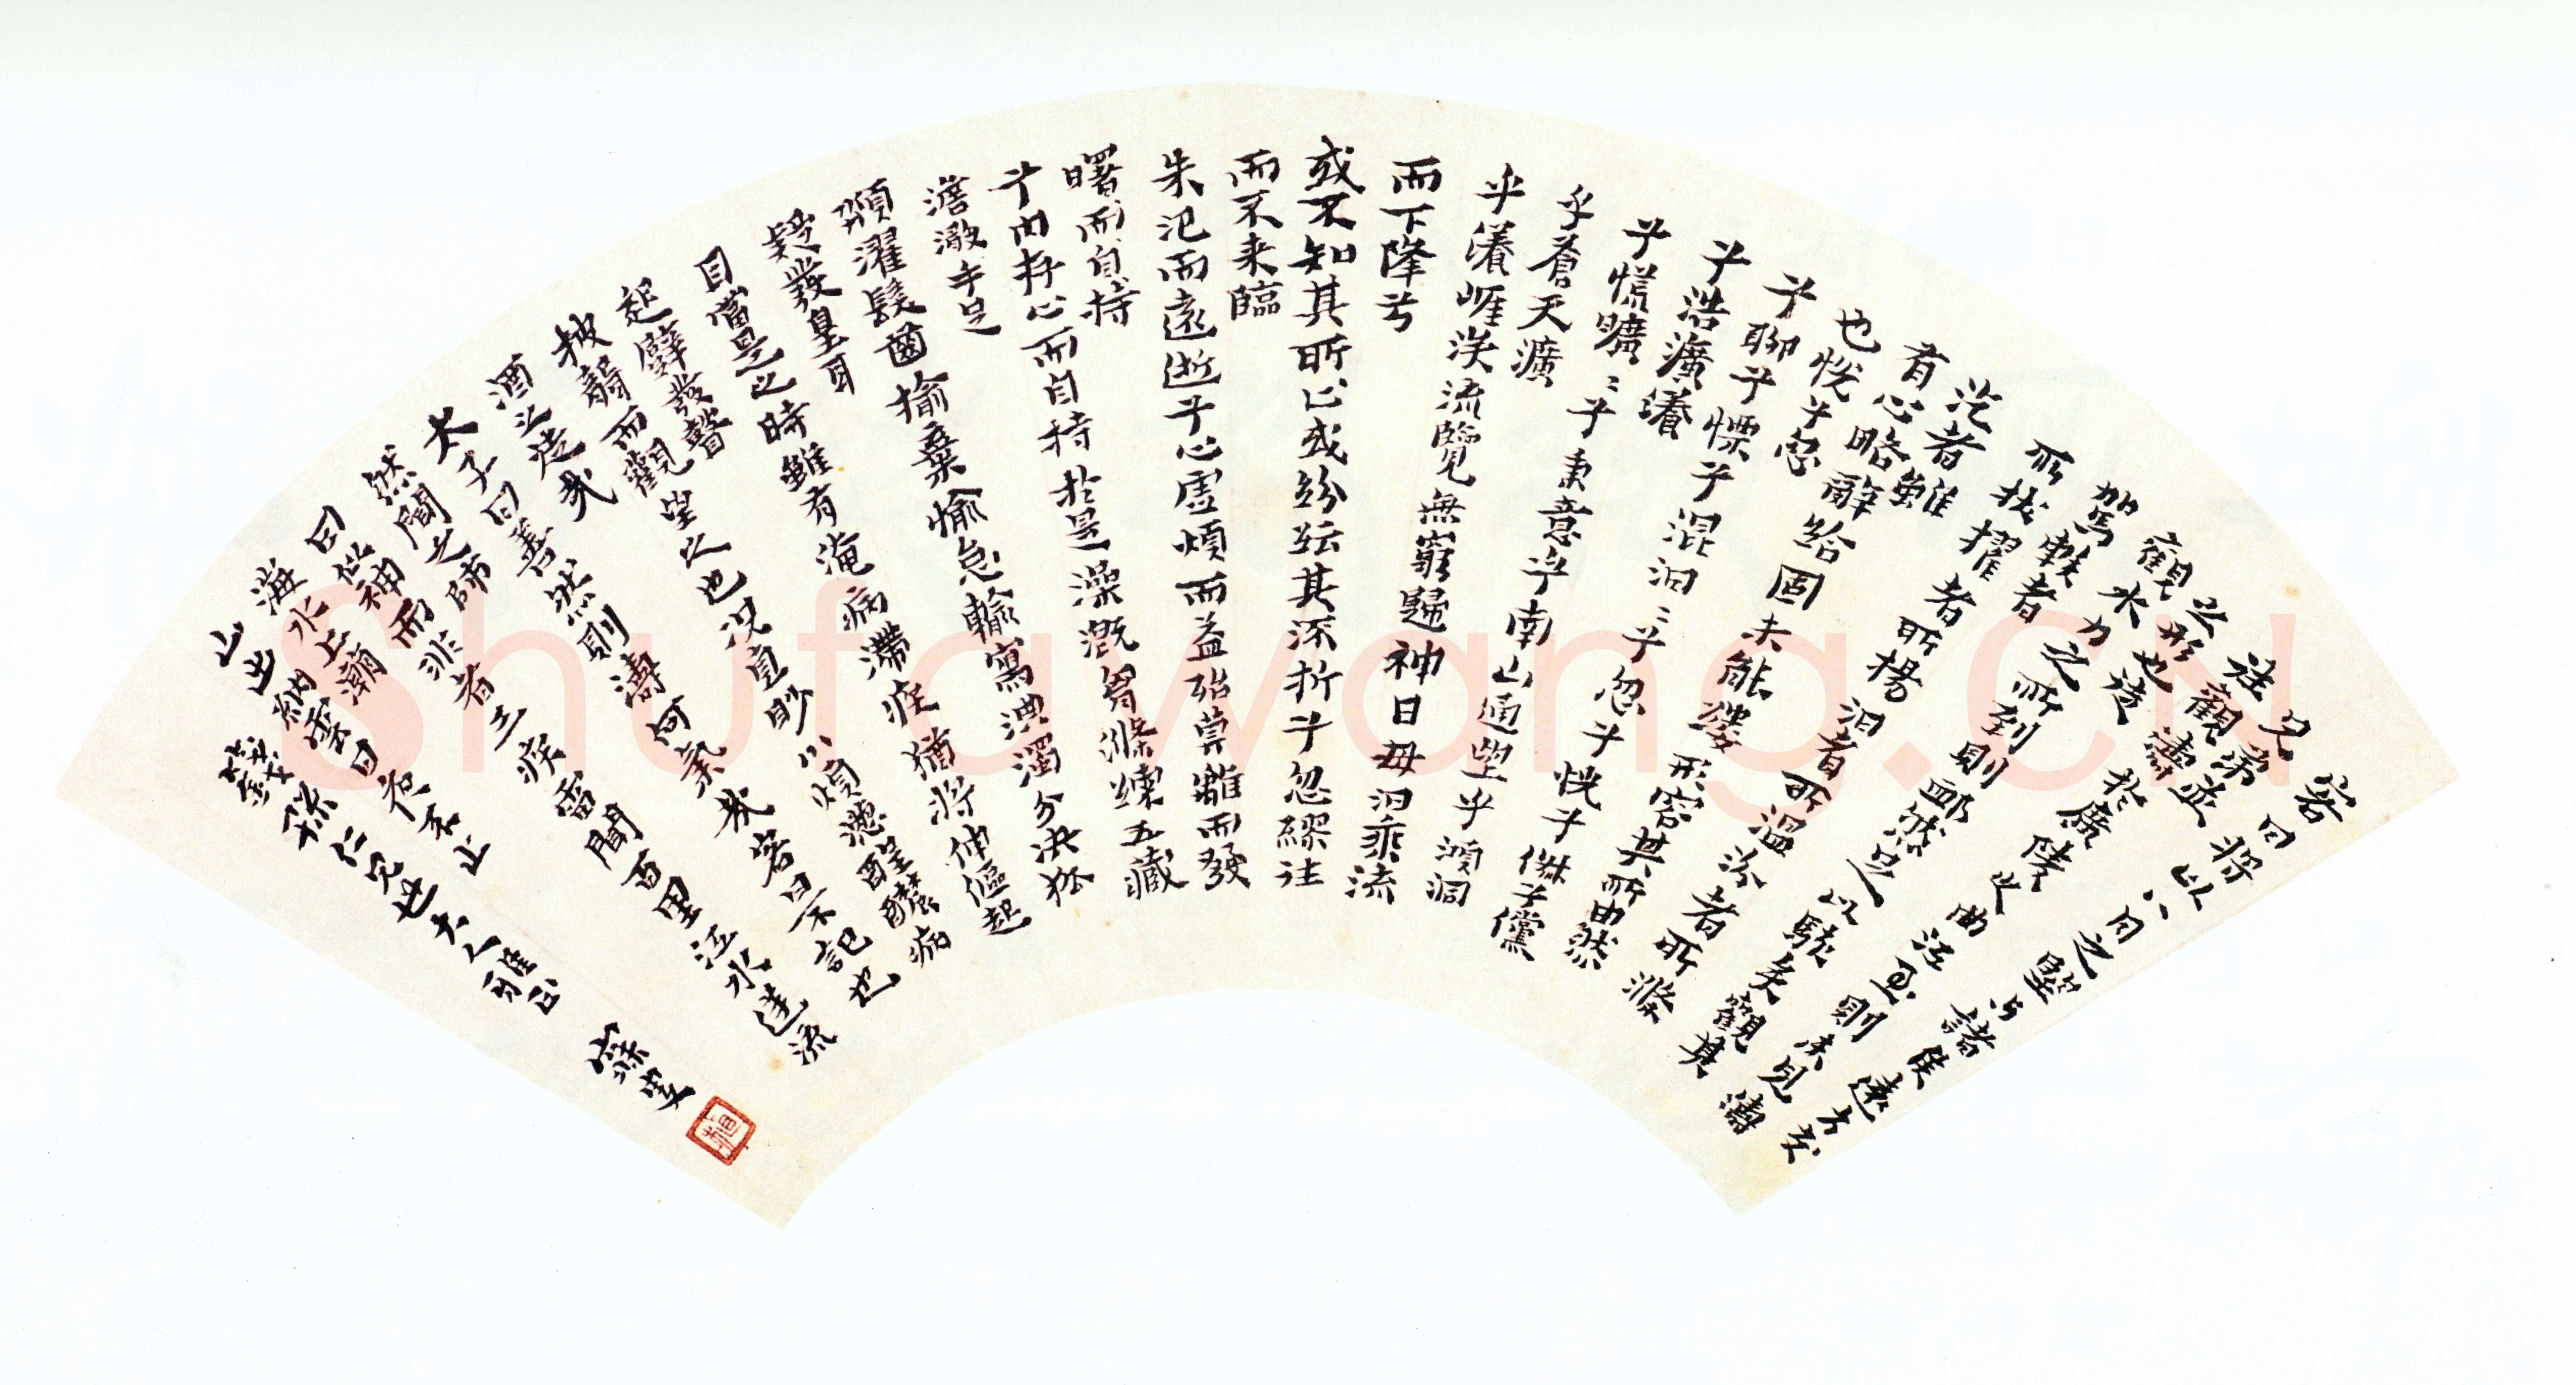 客曰將以八月之望与諸侯遠方交
兄弟並往觀濤於廣陵之曲江至則未見濤
之形也徒觀水力之所到則卹然足以駭矣觀其
所駕軼者所擢拔者所揚汩者所溫汾者所滌
汔者雖有心略辭給固未能縷形容其所由然
也怳兮忽兮聊兮慄兮混汩〻兮忽兮恍兮俶兮儻
兮浩瀇瀁兮慌曠〻兮秉意乎南山通望乎澒洞
兮蒼天瀇
乎瀁崖涘流覽無窮歸神日母汩乘流
而下降兮
或不知其所止或紛紜其流折兮忽繆往
而不來臨
朱汜而遠逝兮心虛煩而益殆莫離而發
曙而自持
兮內存心而自持於是澡溉胷滌練五藏
澹澉手足
頮濯髮齒揄棄愉怠輸寫淟濁分決狐
疑發皇耳
目當是之時雖有淹病滯疾猶將伸傴起
起躄發瞽
披聾而觀望之也況直眇小煩懣酲醲病
酒之徒哉
太子曰善然則濤何氣哉客曰不記也
然聞之師
曰似神而非者三疾雷聞百里江水逆流
海水上潮
山出納雲日夜不止
仁兄世大人雅正
寐叟
shufawang.cn